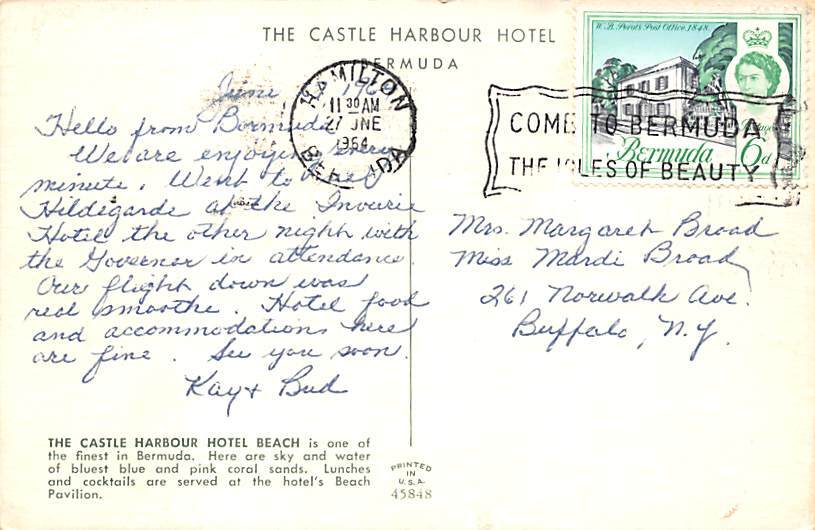 THE CASTLE HARBOUR HOTEL
BERMUDA
June 196
Hello from Bermuda
We are enjoying every
minute. Went to
Hildegarde at the Inverie
Hotel the other night with
the Governor in attendance.
Our flight down was
real smoothe. Hotel food
and accommodations here
are fine. See you soon.
Kay & Bud
THE CASTLE HARBOUR HOTEL BEACH is one of
the finest in Bermuda. Here are sky and water
of bluest blue and pink coral sands. Lunches
and cocktails are served at the hotel's Beach
Pavilion.
PRINTED
IN
U.S.A.
45848
HAMILTON
11 30 AM
27 JNE
1964
BERMUDA
COME TO BERMUDA
THE ISLES OF BEAUTY
W. B. Perot's Post Office, 1848
Bermuda
6d
Mrs. Margaret Broad
Miss Mardi Broad
261 Norwalk Ave.
Buffalo, N.Y.